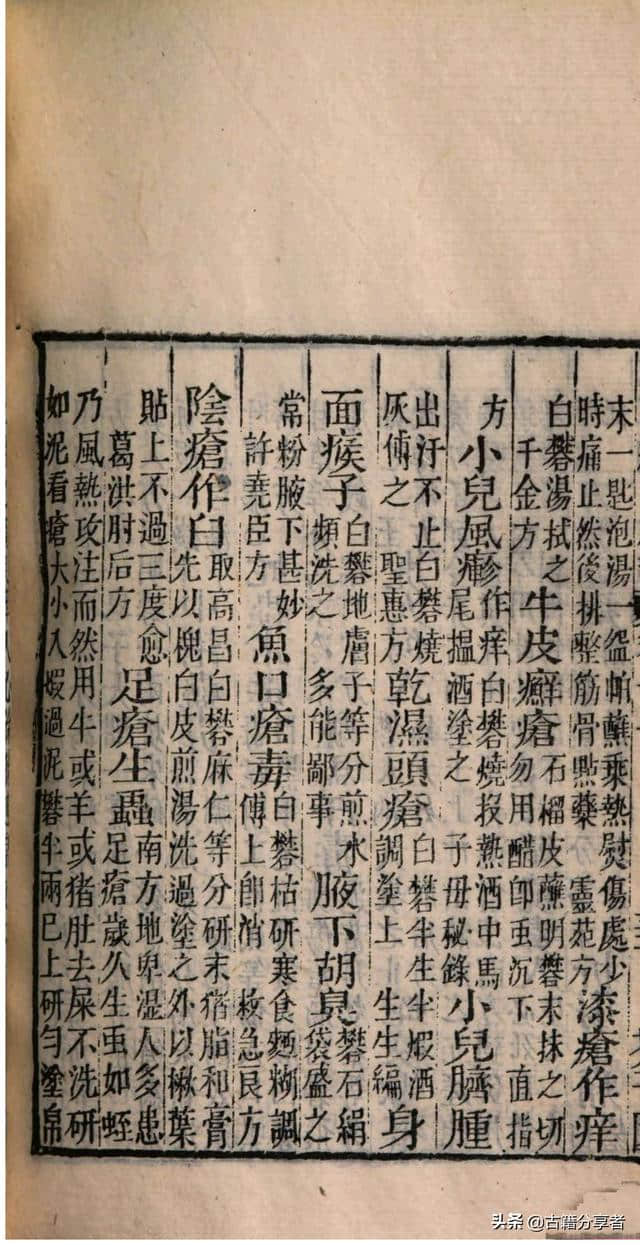 末一匙泡湯一盌帕蘸乘熱熨傷處少
時痛止然後排整筋骨㸃藥 靈苑方
漆瘡作痒
白礬湯拭之
千金方
牛皮癬瘡
石榴皮蘸明礬末抹之切
勿用醋卽虫沉下 直指
方
小兒風瘮
作痒白礬燒投熱酒中馬
尾搵酒塗之 子母秘錄
小兒臍腫
出汗不止白礬燒
灰傅之 聖惠方
乾濕頭瘡
白礬半生半煆酒
調塗上 生生編
身
面瘊子
白礬地膚子等分煎水
頻洗之 多能鄙事
腋下胡臭
礬石絹
袋盛之
常粉腋下甚妙
許堯臣方
魚口瘡毒
白礬枯研寒食麵糊調
傅上卽消 救急良方
陰瘡作臼
取高昌白礬麻仁等分研末猪脂和膏
先以槐白皮煎湯洗過塗之外以楸葉
貼上不過三度愈
葛洪肘后方
足瘡生蟲
南方地卑湿人多患
足瘡歲久生虫如蛭
乃風熱攻注而然用牛或羊或猪肚去屎不洗研
如泥看瘡大小入煆過泥礬半兩已上研勻塗帛
头条 @古籍分享者